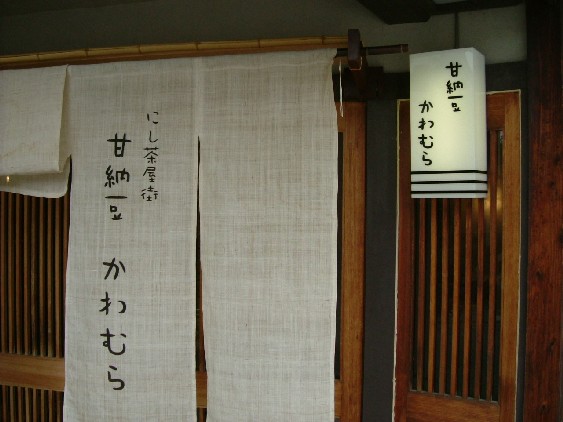 にし茶屋街
甘納豆 かわむら
甘納豆
かわむら